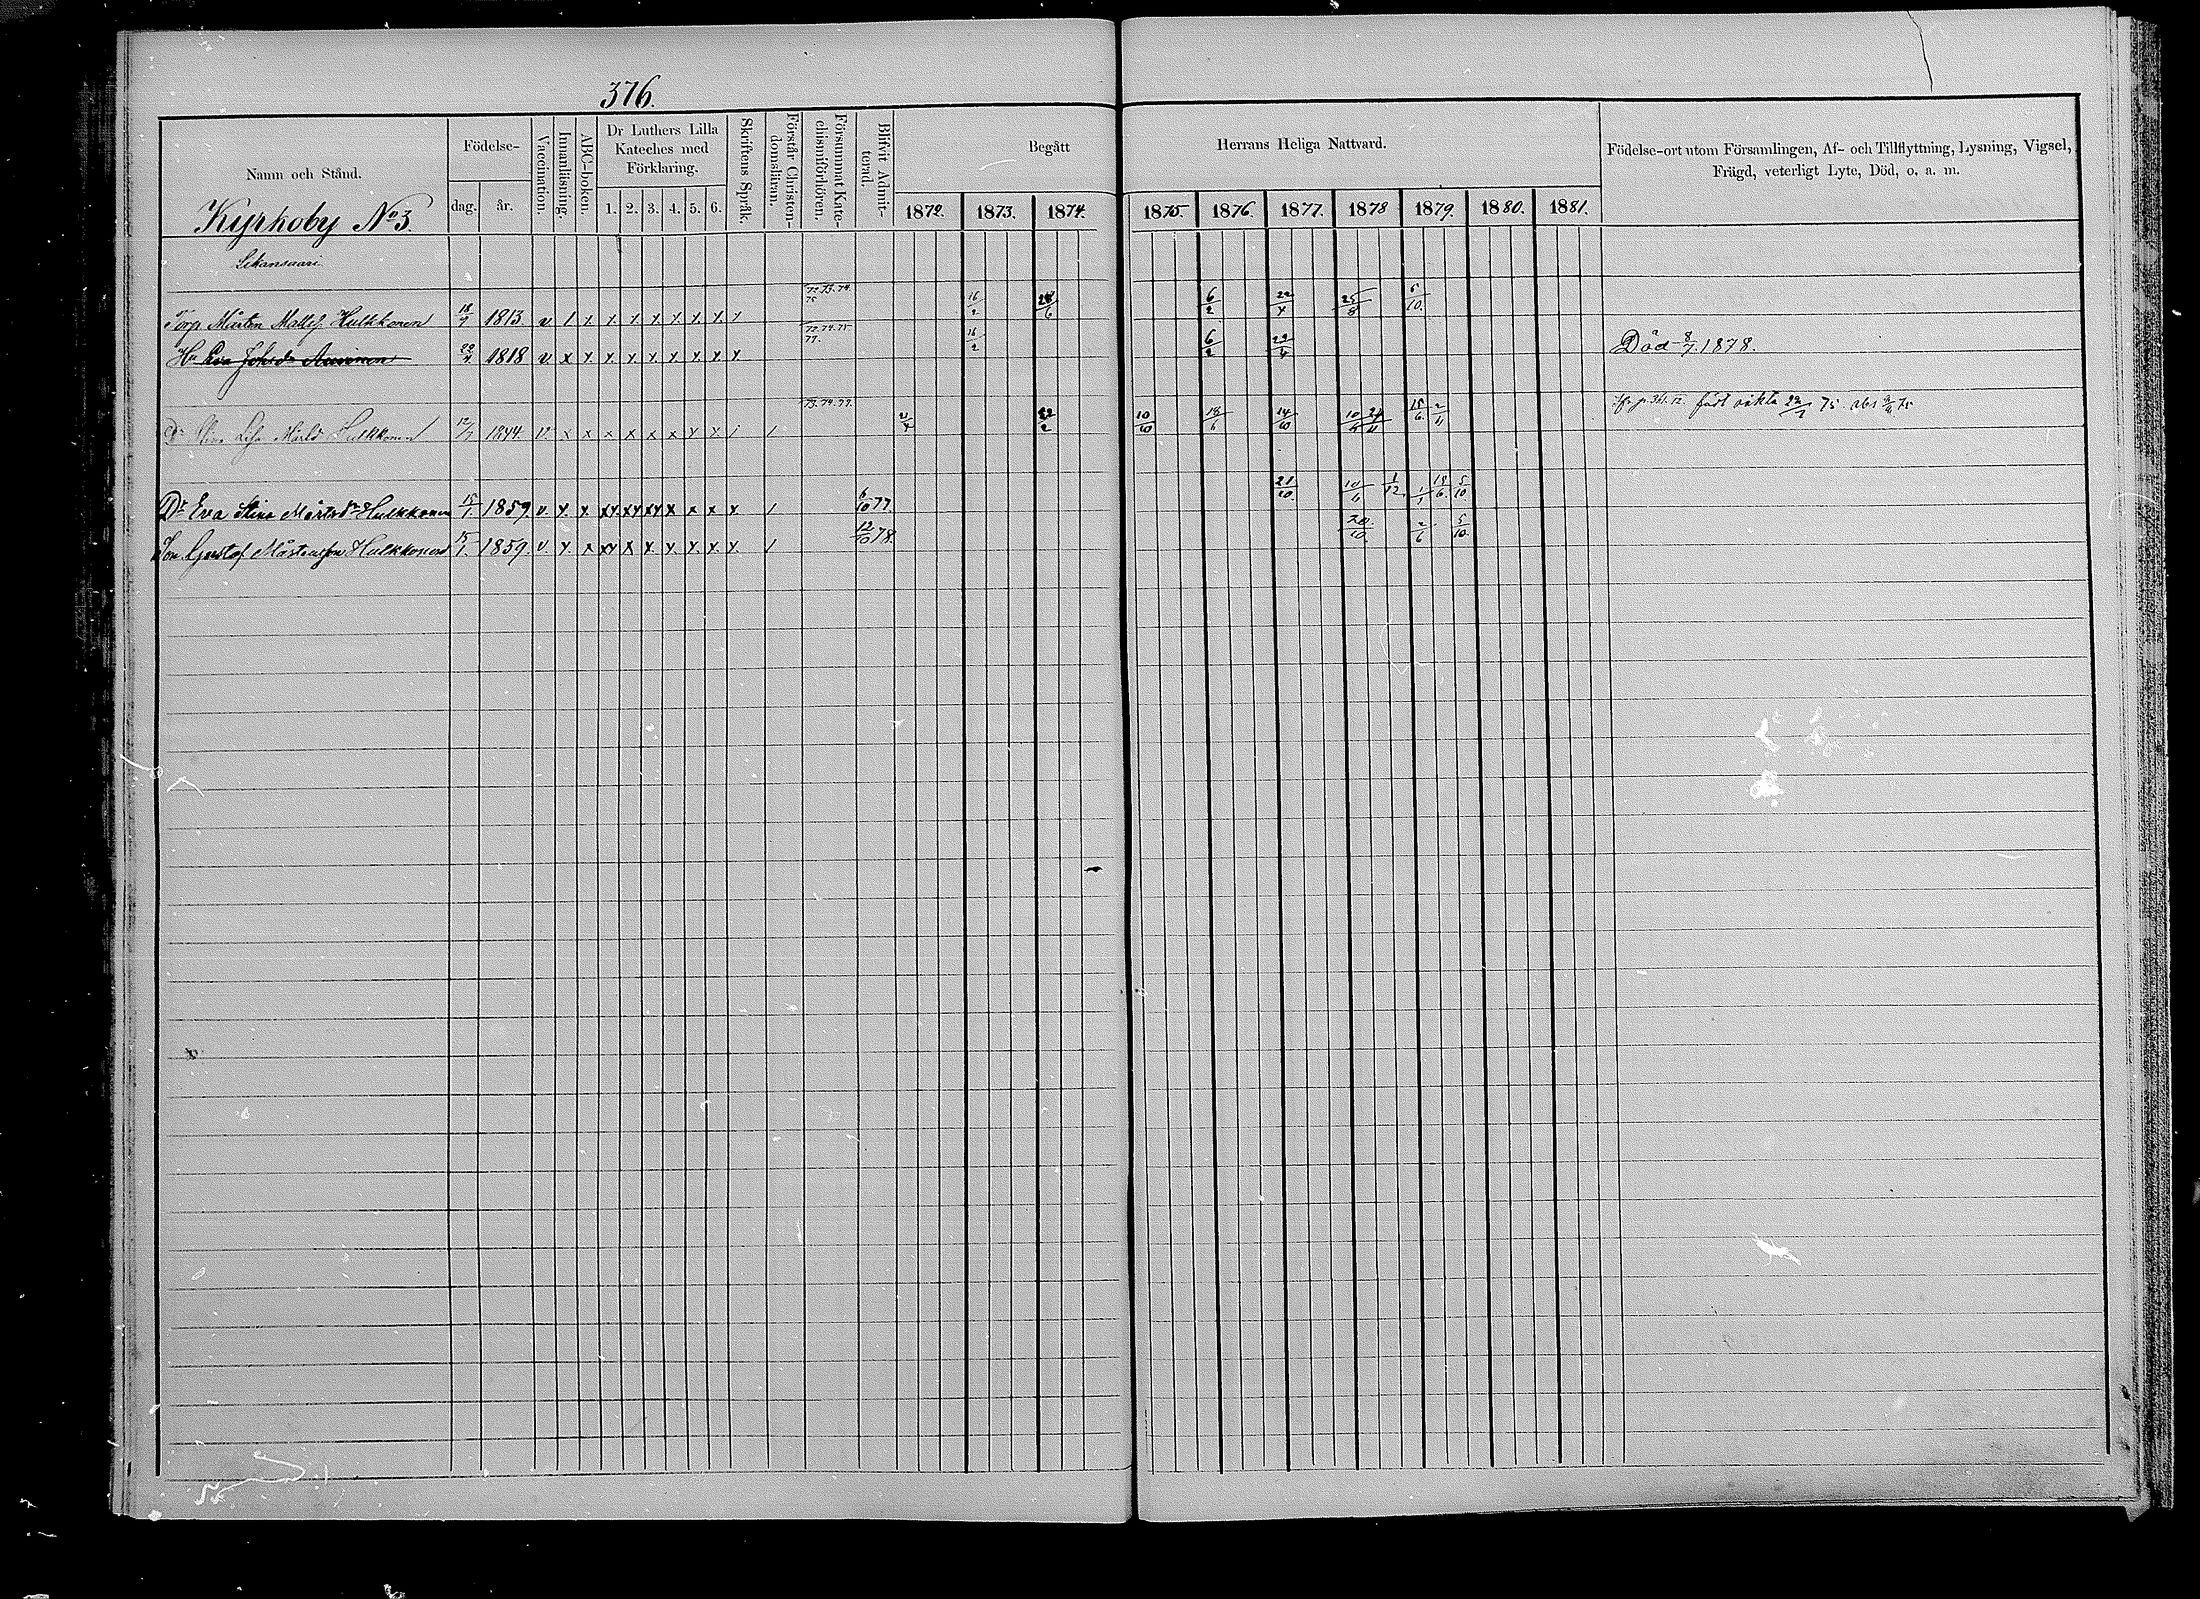 376.
Namn och Stånd.
Födelse-
dag. år.
Vaccination.
Innanläsning.
ABC-boken.
Dr Luthers Lilla
Kateches med
Förklaring.
1. 2. 3. 4. 5. 6.
Skriftens Språk.
Förstår Christen-
domsläran.
Försummat Kate-
chismiförhören.
Blifvit Admit-
terad.
Begått Herrans Heliga Nattvard.
1872. 1873. 1874. 1875. 1876. 1877. 1878 1879. 1880. 1881.
Födelse-ort utom Församlingen, Af- och Tillflyttning, Lysning, Vigsel,
Frägd, veterligt Lyte, Död, o. a. m.
Kyrkoby No 3.
72.73.74.
75
Torp. Mårten Mattes. Hulkkonen 1813 v 16/2 6/2 22/4 25/8 5/10.
72.74.75.
77.
Hu Eva Johsdr Auvinen 1818 v x x x x x x x x x 16/2 6/2 22/4 Död 8/7. 1878.
73.74.79.
Dr Stina Lisa Mårtsd Hulkkonen 1844. v. x x x x x x x x / 10/10 18/6 14/10 15/6. 2/11 födt oäkta 75.
Dr Eva Stina Mårtsdr Hulkkonen 15/1 1859. v. x. x xx. xx xx x x x x / 6/10 77. 21/10. 10/6 1/12. 1/1 18/6. 5/10
Son Gustaf Mårtensson Hulkkonen 15/1. 1859. v. x. x xx x x x x. x. x. / 12/10 78. 20./10. 2/6 5/10.